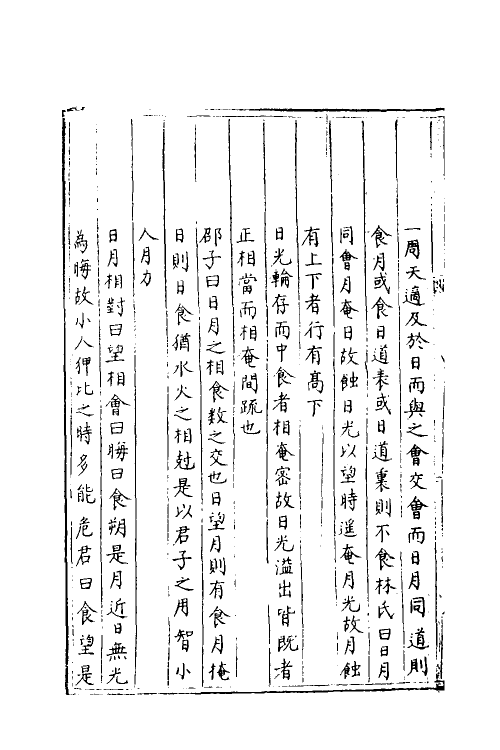 一周天適及於日而與之會交會而日月同道則
食月或食日道表或日道裏則不食林氏曰日月
同會月奄日故蝕日光以望時遥奄月光故月蝕
有上下者行有髙下
日光輪存而中食者相奄密故日光溢出皆既者
正相當而相奄間疏也
邵子曰日月之相食数之交也日望月則有食月掩
日則日食猶水火之相尅是以君子之用智小
人用力
日月相對曰望相會曰晦日食朔是月近日無光
為晦故小人狎比之時多能危君日食望是